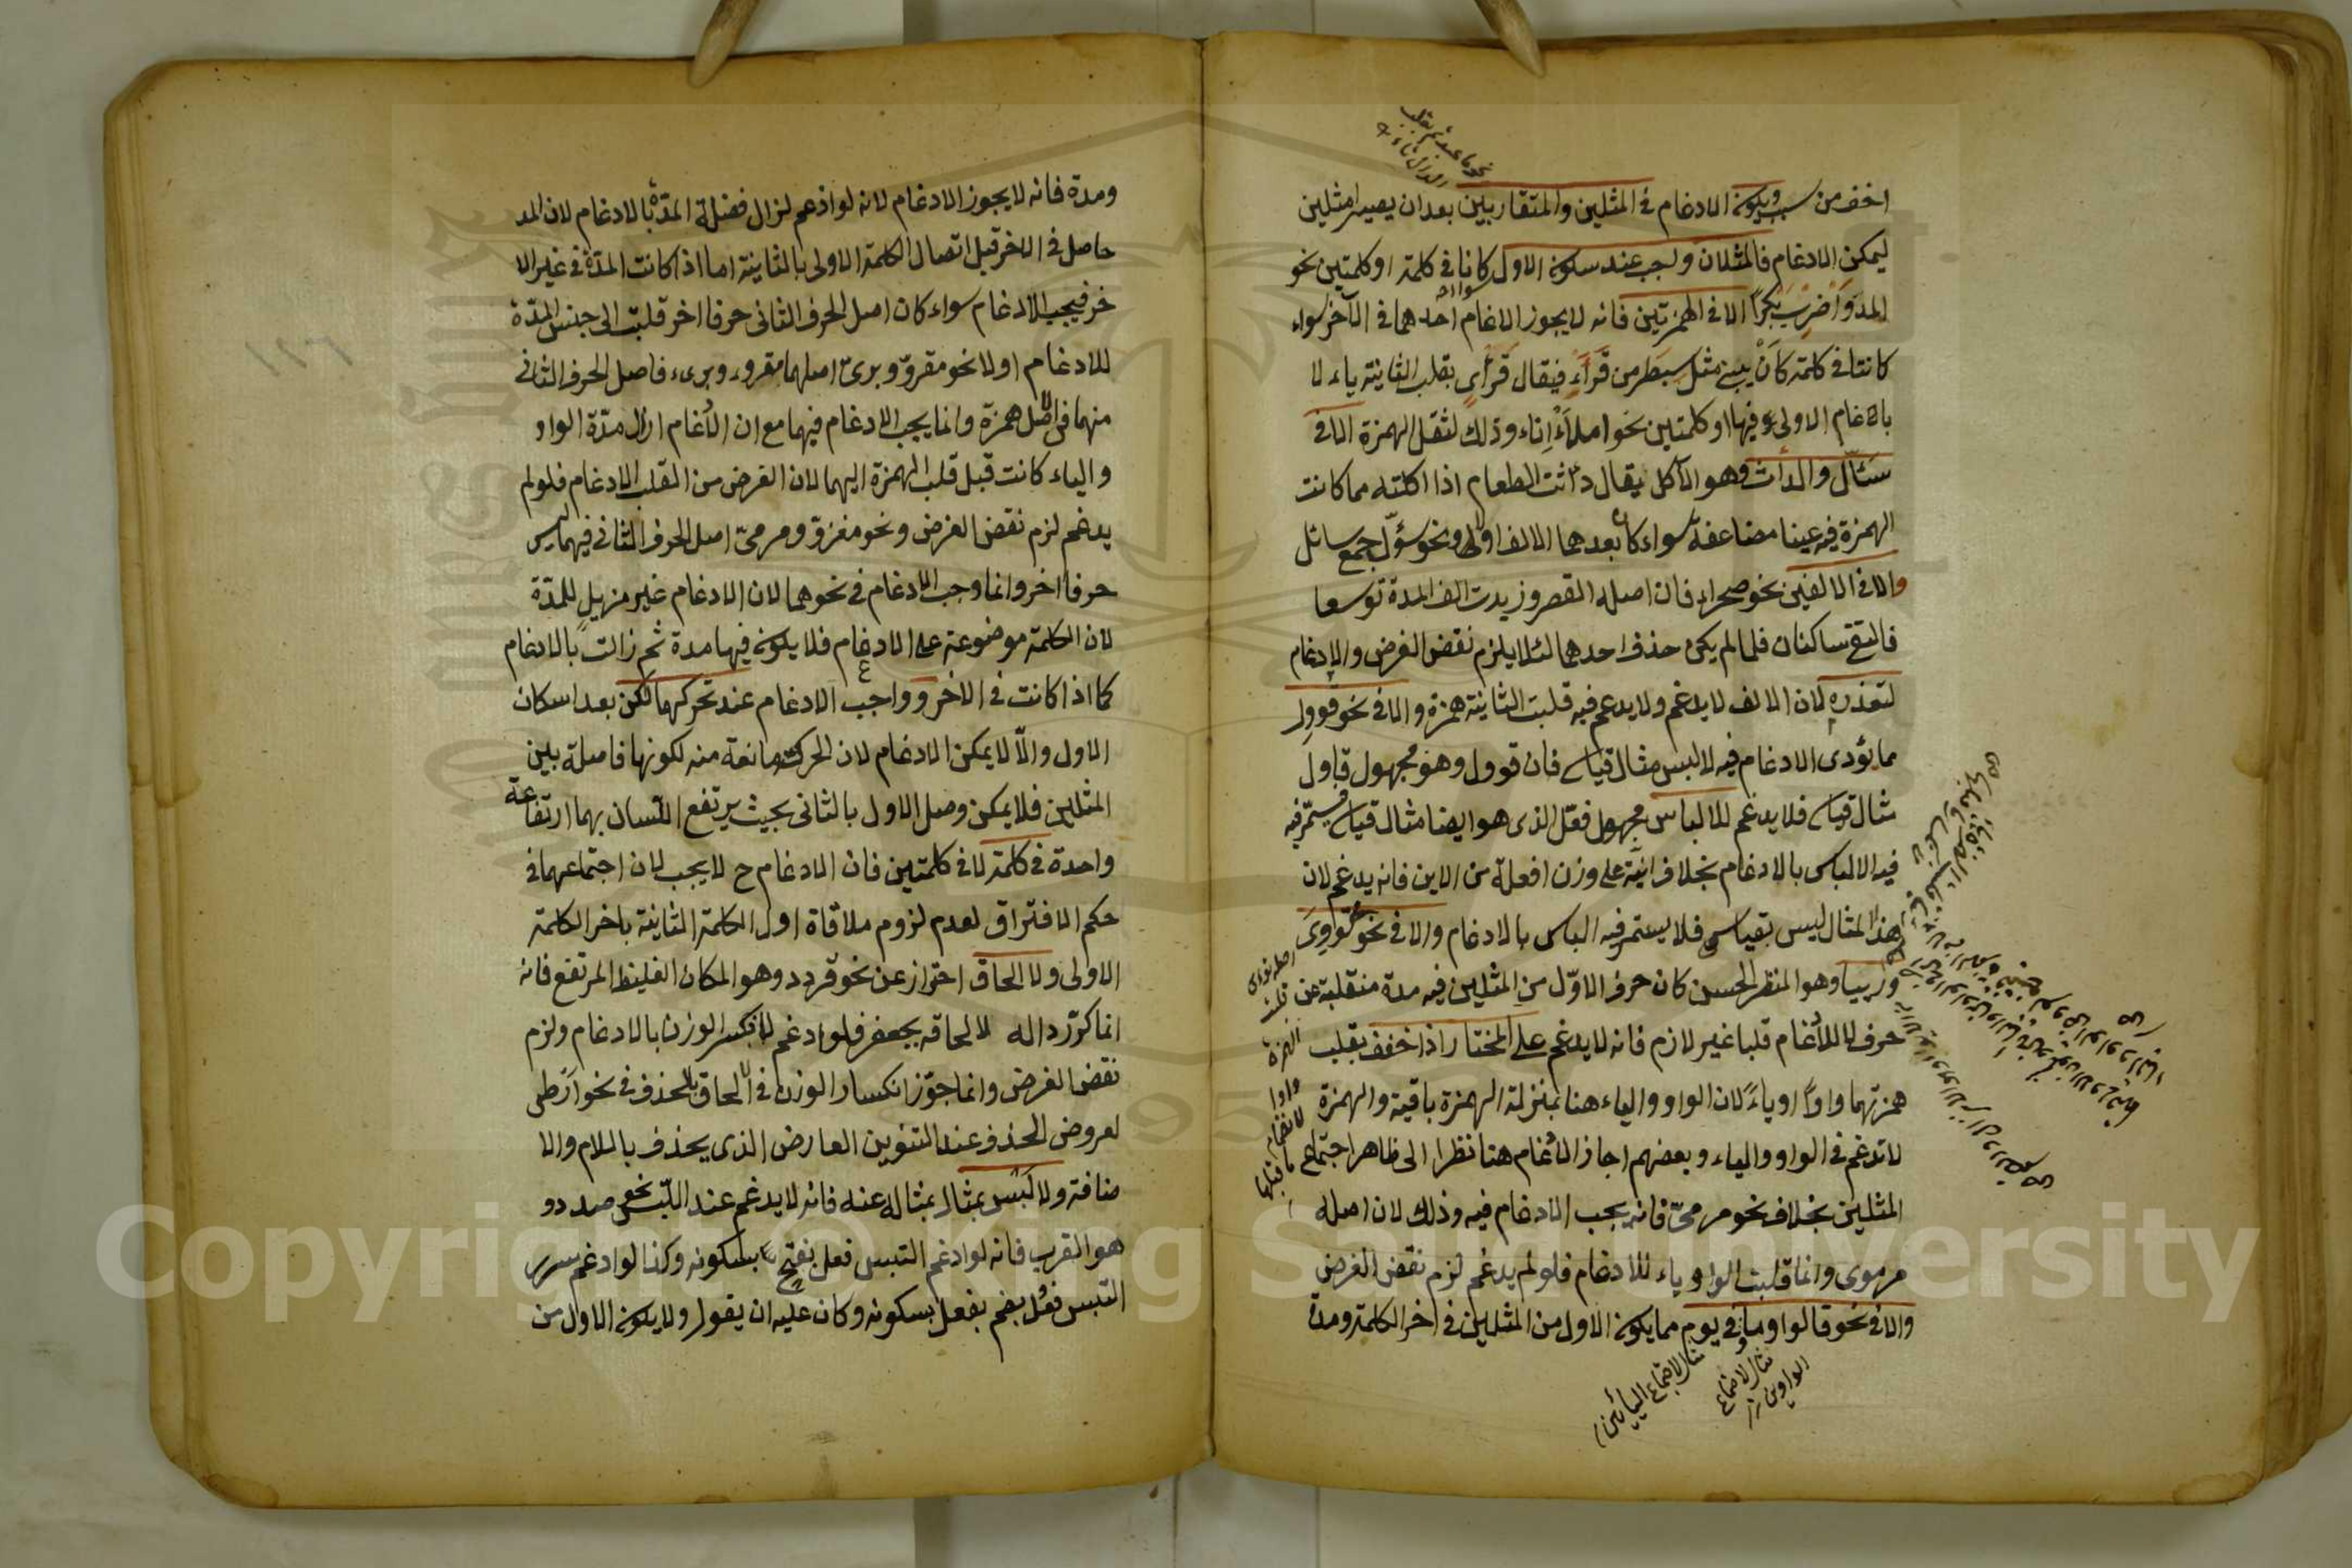 اخف من سبب ويكون الادغام في المثلين والمتقاربين بعد ان يصيرا مثلين
ليمكن الادغام فالمثلان واجب عند سكون الاول كانا في كلمة او كلمتين نحو
المدّ واضرب بكرا الا في الهمزتين فانه لا يجوز الادغام احدهما في الآخر سواء
كانتا في كلمة كأن يبنى مثل سبطر من قرأ فيقال قرأي بقلب الثانية ياء لا
بادغام الاولى فيها او كلمتين نحو املأ اناء وذلك لثقل الهمزة الا في
سئّال والدأّث وهو الآكل يقال دأثت الطعام اذا اكلته مما كانت
الهمزة فيه عينا مضاعفة سواء كان بعدهما الالف اولا ونحو سؤّل جمع سائل
والا في الالفين نحو صحراء فان اصله القصر وزيدت الف المدة توسعا
فالتقى ساكنان فلما لم يكن حذف احدهما لئلا يلزم نقض الغرض والادغام
لتعذره لان الالف لا يدغم ولا يدغم فيه قلبت الثانية همزة والا في نحو قوول
مما يؤدى الادغام فيه لالبس مثال قياس فان قوول وهو مجهول قاول
مثال قياس فلا يدغم للالباس مجهول فعّل الذى هو ايضا مثال قياس فيستمر فيه
فيه الالباس بالادغام بخلاف ايّنة على وزن افعلة من الاين فانه يدغم لان
هذا المثال ليس بقياسى فلا يستمر فيه الباس بالادغام والا في نحو تووى
وريييا وهو المنظر الحسن كان حرف الاوّل من المثلين فيه مدة منقلبة عن
حرف لا للادغام قلبا غير لازم فانه لا يدغم على المختار اذا خفف بقلب
همزتهما واوا او ياء لان الواو والياء هنا بمنزلة الهمزة باقية والهمزة
لا تدغم في الواو والياء وبعضهم اجاز الادغام هنا نظرا الى ظاهر اجتماع
المثلين بخلاف نحو مرمىّ فانه يجب الادغام فيه وذلك لان اصله
مرموى وانما قلبت الواو ياء للادغام فلو لم يدغم لزم نقض الغرض
والا في نحو قالوا وما وفي يوم مما يكون الاول من المثلين في اخر الكلمة ومدة
مثال لاجتماع الواوين
مثال لاجتماع اليائين
قلبت
الهمزة
واوا
لانضمام
ما قبلها
ومدة فانه لا يجوز الادغام لانه لو ادغم لزال فضلة المدّة بالادغام لان المد
حاصل في الاخر قبل اتصال الكلمة الاولى بالثانية اما اذا كانت المدّة في غير الا
خر فيجب الادغام سواء كان اصل الحرف الثاني حرفا اخر قلبت الى جنس المدّة
للادغام اولا نحو مقروّ وبرىّ اصلهما مقروء وبرىء فاصل الحرف الثاني
منهما في الاصل همزة وانما يجب الادغام فيهما مع ان الادغام ازال مدّة الواو
والياء كانت قبل قلب الهمزة اليهما لان الغرض من القلب الادغام فلو لم
يدغم لزم نقض الغرض ونحو مغزوّ ومرمىّ اصل الحرف الثاني فيهما ليس
حرفا اخر وانما وجب الادغام في نحوهما لان الادغام غير مزيل للمدّة
لان الكلمة موضوعة على الادغام فلا يكون فيها مدة ثم زالت بالادغام
كما اذا كانت في الاخر وواجب الادغام عند تحركهما لكن بعد اسكان
الاول والّا لا يمكن الادغام لان الحركة مانعة منه لكونها فاصلة بين
المثلين فلا يمكن وصل الاول بالثاني بحيث يرتفع اللسان بهما ارتفاعة
واحدة في كلمة لا في كلمتين فان الادغام ح لا يجب لان اجتماعهما في
حكم الافتراق لعدم لزوم ملاقاة اول الكلمة الثانية باخر الكلمة
الاولى ولا الحاق احتراز عن نحو قردد وهو المكان الغليظ المرتفع فانه
انما كرّر داله لالحاقه بجعفر فلو ادغم لانكسر الوزن بالادغام ولزم
نقض الغرض وانما جوّز انكسار الوزن في الالحاق بالحذف في نحو ارطى
لعروض الحذف عند التنوين العارض الذى يحذف باللام والا
ضافة ولا لبس بمثال بمثال عنه فانه لا يدغم عند اللبس نحو صدد و
هو القرب فانه لو ادغم التبس فعل بفتح ع بسكونه وكذا لو ادغم سرر
التبس فعل بضم بفعل بسكونه وكان عليه ان يقول ولا يكون الاول من
Copyright © King Saud University
1957